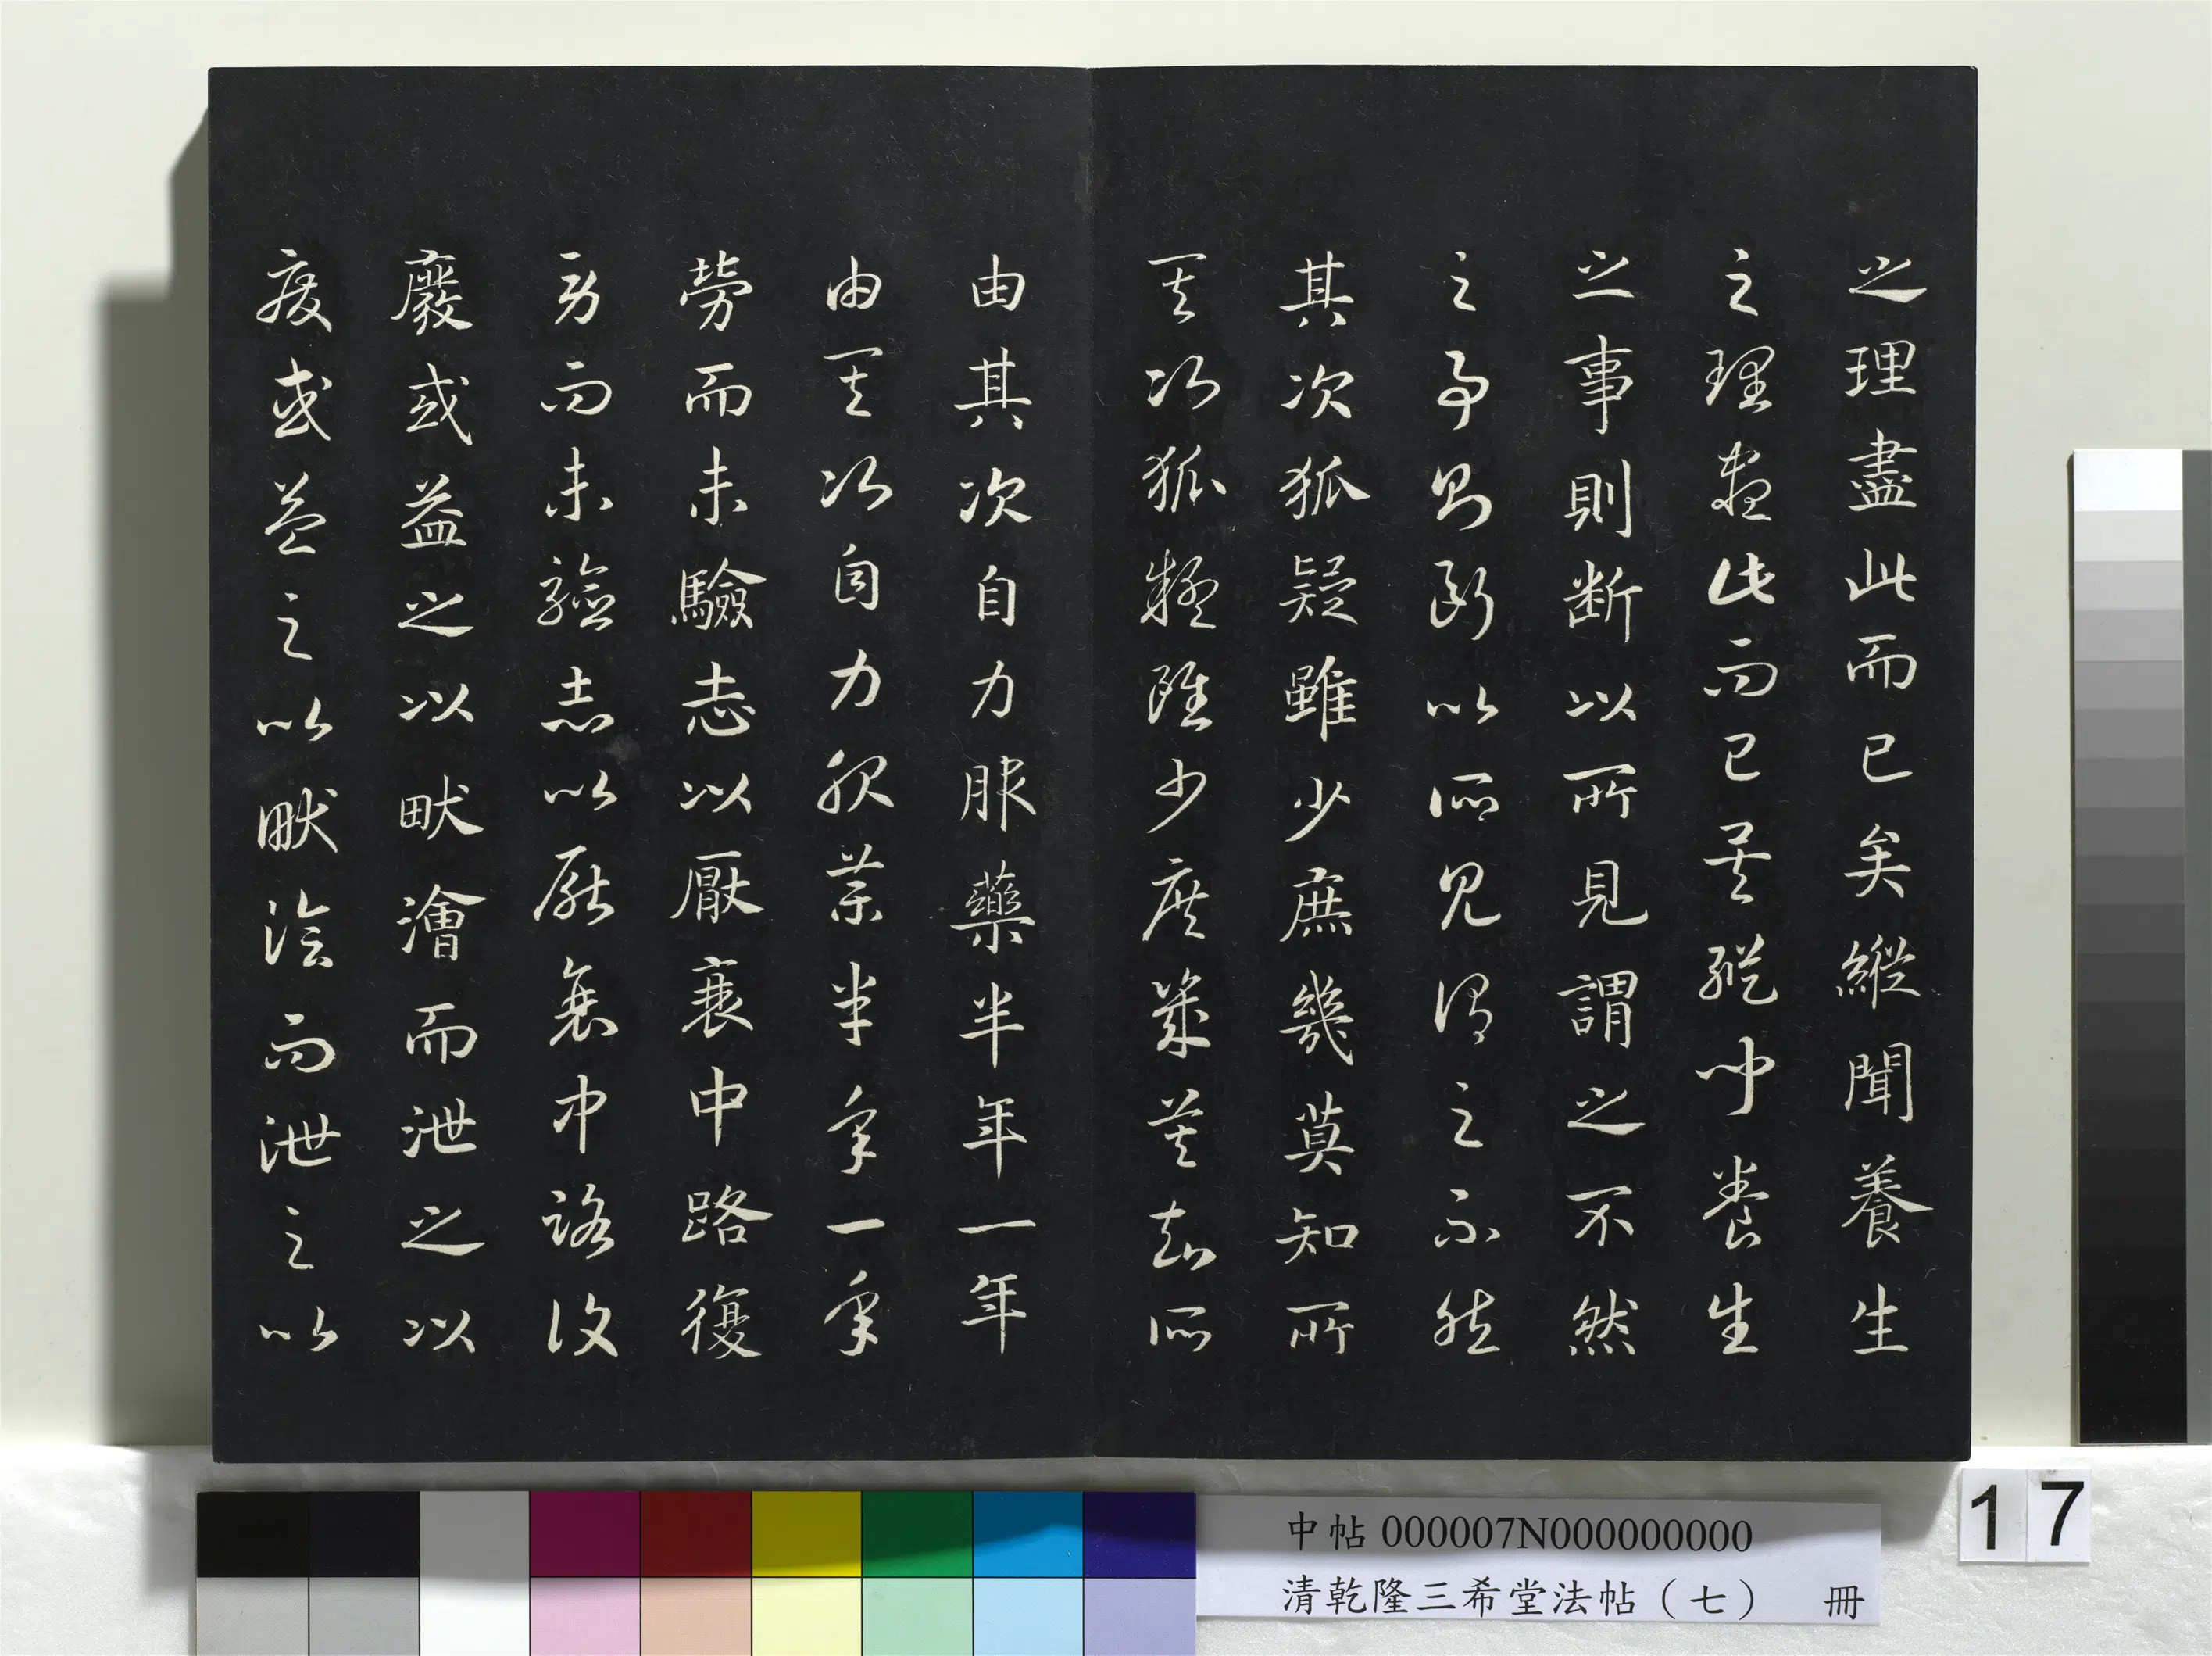 之理盡此而已矣縱聞養生
之理盡此而已矣縱聞養生
之事則断以所見謂之不然
之事則断以所見謂之不然
其次狐疑雖少庶幾莫知所
其次狐疑雖少庶幾莫知所
由其次自力服藥半年一年
由其次自力服藥半年一年
勞而未驗志以厭衰中路復
勞而未驗志以厭衰中路復
廢或益之以畎澮而泄之以
廢或益之以畎澮而泄之以
17
中帖 000007N000000000
清乾隆三希堂法帖（七） 冊